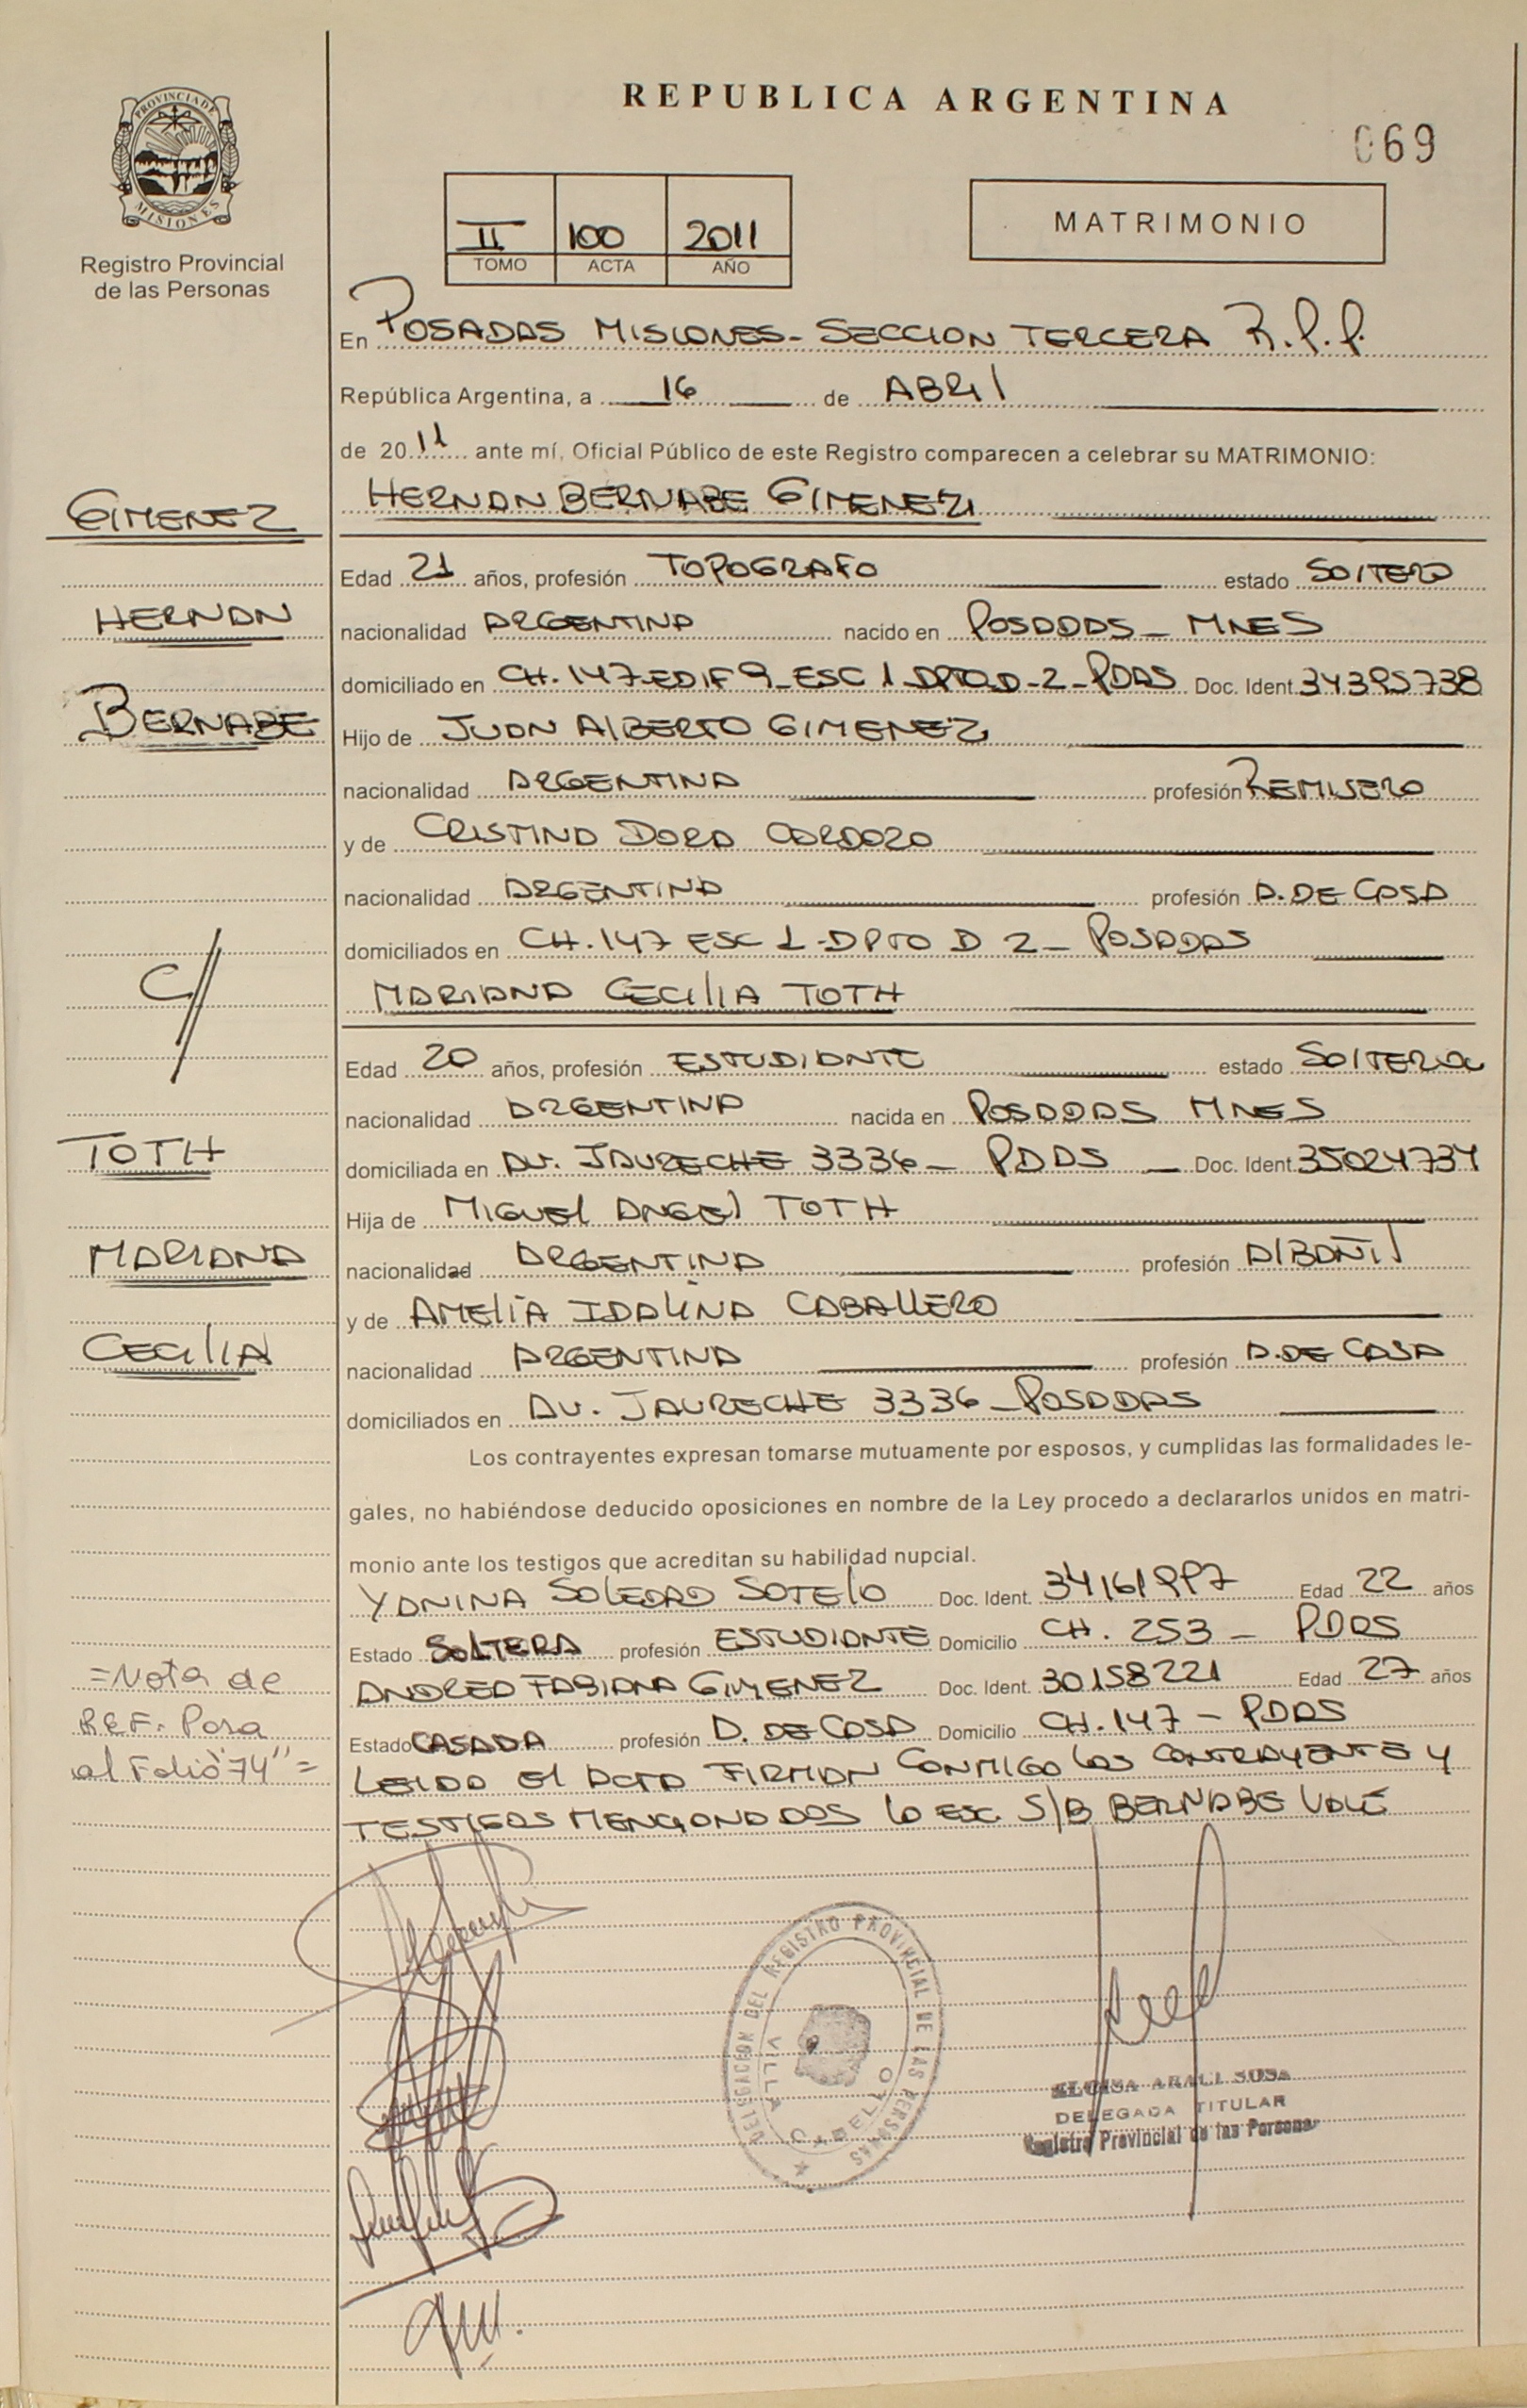 REPUBLICA ARGENTINA
069
PROVINCIA DE
MISIONES
Registro Provincial
de las Personas
II 100 2011
TOMO ACTA AÑO
MATRIMONIO
En POSADAS MISIONES - SECCION TERCERA R.P.P.
República Argentina, a 16 de ABRIL
de 2011 ante mí, Oficial Público de este Registro comparecen a celebrar su MATRIMONIO:
GIMENEZ
HERNAN BERNABE GIMENEZ
Edad 21 años, profesión TOPOGRAFO estado SOLTERO
HERNAN
nacionalidad ARGENTINA nacido en POSADAS - MNES
domiciliado en CH. 147-EDIF 9-ESC 1-DPTO D-2-PDAS Doc. Ident. 34395738
BERNABE
Hijo de JUAN ALBERTO GIMENEZ
nacionalidad ARGENTINA profesión REMISERO
y de CRISTINA DORA CARDOZO
nacionalidad ARGENTINA profesión A. DE CASA
domiciliados en CH. 147 ESC 1-DPTO D 2 - POSADAS
C//
MARIANA CECILIA TOTH
Edad 20 años, profesión ESTUDIANTE estado SOLTERA
nacionalidad ARGENTINA nacida en POSADAS MNES
TOTH
domiciliada en AV. JAURECHE 3336 - PDAS - Doc. Ident. 35024734
Hija de MIGUEL ANGEL TOTH
MARIANA
nacionalidad ARGENTINA profesión ALBAÑIL
y de AMELIA IDALINA CABALLERO
CECILIA
nacionalidad ARGENTINA profesión A. DE CASA
domiciliados en AV. JAURECHE 3336 - POSADAS
Los contrayentes expresan tomarse mutuamente por esposos, y cumplidas las formalidades le-
gales, no habiéndose deducido oposiciones en nombre de la Ley procedo a declararlos unidos en matri-
monio ante los testigos que acreditan su habilidad nupcial.
YANINA SOLEDAD SOTELO Doc. Ident. 34161997 Edad 22 años
Estado SOLTERA profesión ESTUDIANTE Domicilio CH. 253 - PDAS
=Nota de
ANDREA FABIANA GIMENEZ Doc. Ident. 30158221 Edad 27 años
REF: Pasa
Estado CASADA profesión A. DE CASA Domicilio CH. 147 - PDAS
al Folio "74"=
LEIDO EL ACTA FIRMAN CONMIGO LOS CONTRAYENTE Y
TESTIGOS MENCIONADOS LO ESC. S/B BERNABE VALE
DELEGACION DEL REGISTRO PROVINCIAL DE LAS PERSONAS
VILLA CABELLO
ELOISA ARACI SOSA
DELEGADA TITULAR
Registro Provincial de las Personas